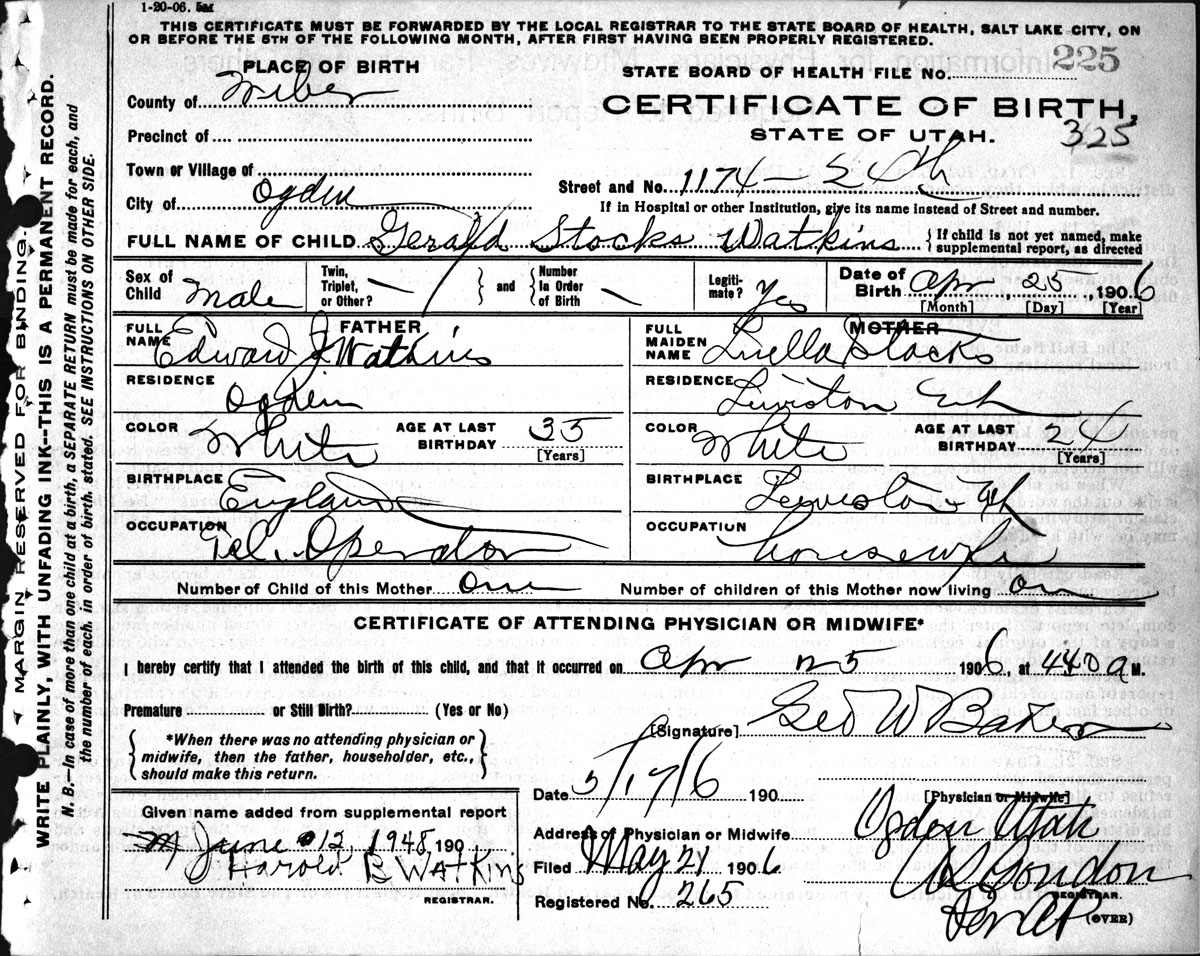 1-20-06. 5M
THIS CERTIFICATE MUST BE FORWARDED BY THE LOCAL REGISTRAR TO THE STATE BOARD OF HEALTH, SALT LAKE CITY, ON
OR BEFORE THE 5TH OF THE FOLLOWING MONTH, AFTER FIRST HAVING BEEN PROPERLY REGISTERED.
MARGIN RESERVED FOR BINDING.
WRITE PLAINLY, WITH UNFADING INK--THIS IS A PERMANENT RECORD.
N. B.--In case of more than one child at a birth, a SEPARATE RETURN must be made for each, and
the number of each, in order of birth, stated. SEE INSTRUCTIONS ON OTHER SIDE.
PLACE OF BIRTH
County of Weber
Precinct of
Town or Village of
City of Ogden
STATE BOARD OF HEALTH FILE No. 225
CERTIFICATE OF BIRTH,
STATE OF UTAH.
325
Street and No. 1174
If in Hospital or other Institution, give its name instead of Street and number.
FULL NAME OF CHILD Gerald Stocks Watkins
If child is not yet named, make
supplemental report, as directed
Sex of Child Male
Twin, Triplet, or Other?
and
Number in Order of Birth
Legitimate? Yes
Date of Birth Apr 25, 1906
[Month] [Day] [Year]
FATHER
FULL NAME Edward J Watkins
RESIDENCE Ogden
COLOR White
AGE AT LAST BIRTHDAY 35
[Years]
BIRTHPLACE England
OCCUPATION Tel. Operator
MOTHER
FULL MAIDEN NAME Luella Stocks
RESIDENCE Lewiston
COLOR White
AGE AT LAST BIRTHDAY 24
[Years]
BIRTHPLACE Lewiston
OCCUPATION housewife
Number of Child of this Mother one
Number of children of this Mother now living one
CERTIFICATE OF ATTENDING PHYSICIAN OR MIDWIFE*
I hereby certify that I attended the birth of this child, and that it occurred on Apr 25 1906, at 440 a M.
Premature or Still Birth? (Yes or No)
*When there was no attending physician or
midwife, then the father, householder, etc.,
should make this return.
[Signature] Geo W Baker
[Physician or Midwife]
Date 5/17/6 190
Address of Physician or Midwife Ogden Utah
Filed May 21 1906
Registered No. 265
REGISTRAR.
(OVER)
Given name added from supplemental report
June 12 1948 190
Harold B Watkins
REGISTRAR.